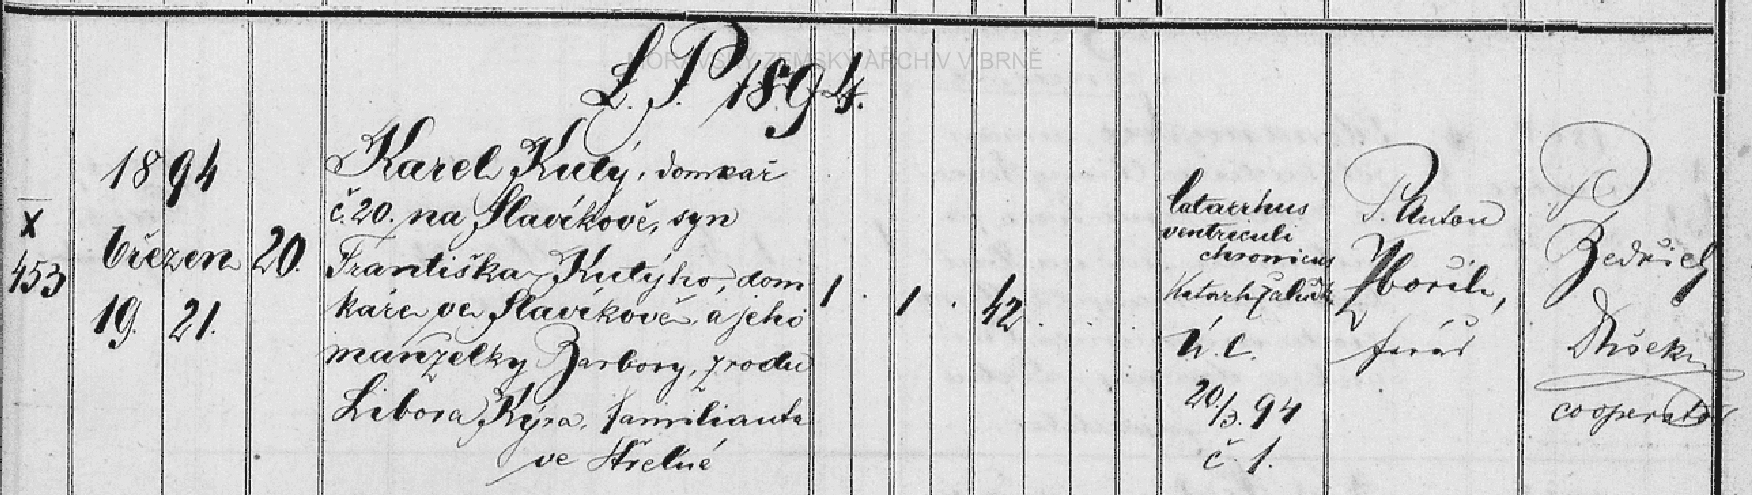 MORAVSKÝ ZEMSKÝ ARCHIV V BRNĚ
L. P. 1894.
X
453
1894
březen
19. 21.
20.
Karel Kutý, domkař
č. 20. na Slavíkově, syn
Františka Kutýho, dom
káře ve Slavíkově, a jeho
manželky Barbory, z rodu
Libora Kýra, familianta
ve Střelné
1. 1. 42
Catarrhus
ventriculi
chronicus
Katarh žalúdk
Ú. l.
20/3. 94
č 1.
P. Anton
Horák,
farář
P.
Bedřich
Dušek
cooperator